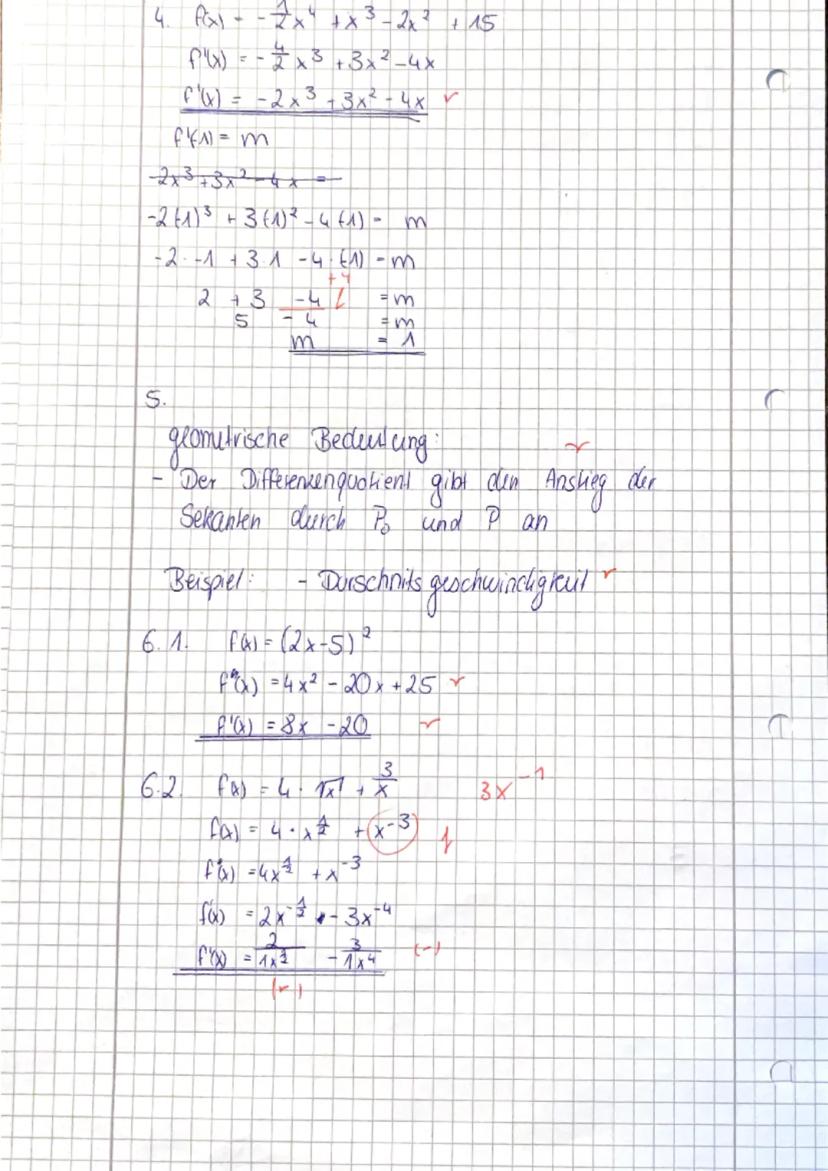 4. f(x) = -1/2x⁴ + x³ - 2x² + 15
f'(x) = -4/2 x³ + 3x² - 4x
f'(x) = -2x³ + 3x² - 4x
f'(-1) = m
-2x³ + 3x² - 4x =
-2(-1)³ + 3(-1)² - 4(-1) = m
-2 · -1 + 3·1 - 4·(-1) = m
+4
2 + 3 -4 = m
5 - 4 = m
m = 1
5.
geometrische Bedeutung:
- Der Differenzenquotient gibt den Anstieg der
Sekanten durch P₀ und P an
Beispiel: - Durschnitsgeschwindigkeit
6.1. f(x) = (2x-5)²
f(x) = 4x² - 20x + 25
f'(x) = 8x - 20
6.2. f(x) = 4 · √x + 3/x 3x⁻¹
f(x) = 4 · x^1/2 + x⁻³ f
f(x) = 4x^1/2 + x⁻³
f'(x) = 2x^-1/2 - 3x⁻⁴
f'(x) = 2/1x^1/2 - 3/1x⁴ (-)
(r)